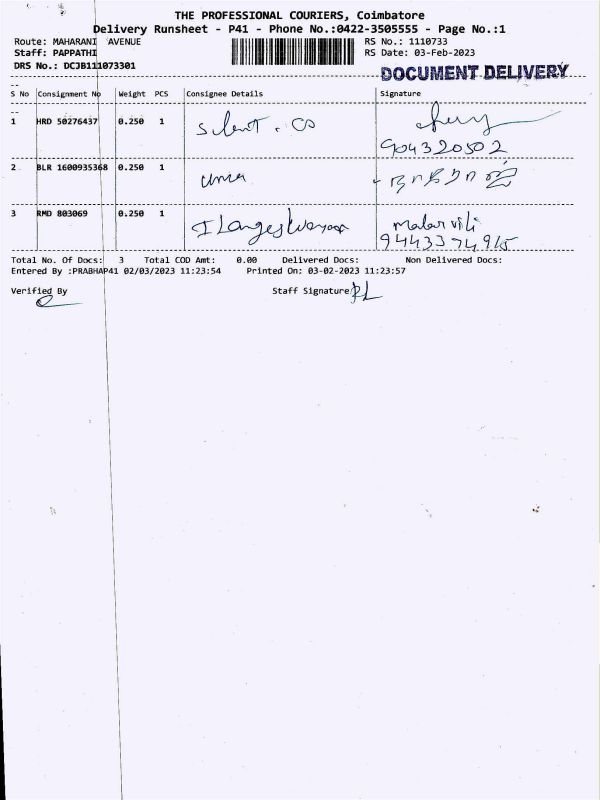 THE PROFESSIONAL COURIERS, Coimbatore
Delivery Runsheet - P41 - Phone No.:0422-3505555 - Page No.:1
Route: MAHARANI AVENUE RS No.: 1110733
Staff: PAPPATHI RS Date: 03-Feb-2023
DRS No.: DCJB111073301 DOCUMENT DELIVERY
S No Consignment No Weight PCS Consignee Details Signature
1 HRD 50276437 0.250 1
904320502
2 BLR 1600935368 0.250 1 uma
3 RMD 803069 0.250 1 Malar vili
9443374915
Total No. Of Docs: 3 Total COD Amt: 0.00 Delivered Docs: Non Delivered Docs:
Entered By :PRABHAP41 02/03/2023 11:23:54 Printed On: 03-02-2023 11:23:57
Verified By Staff Signature